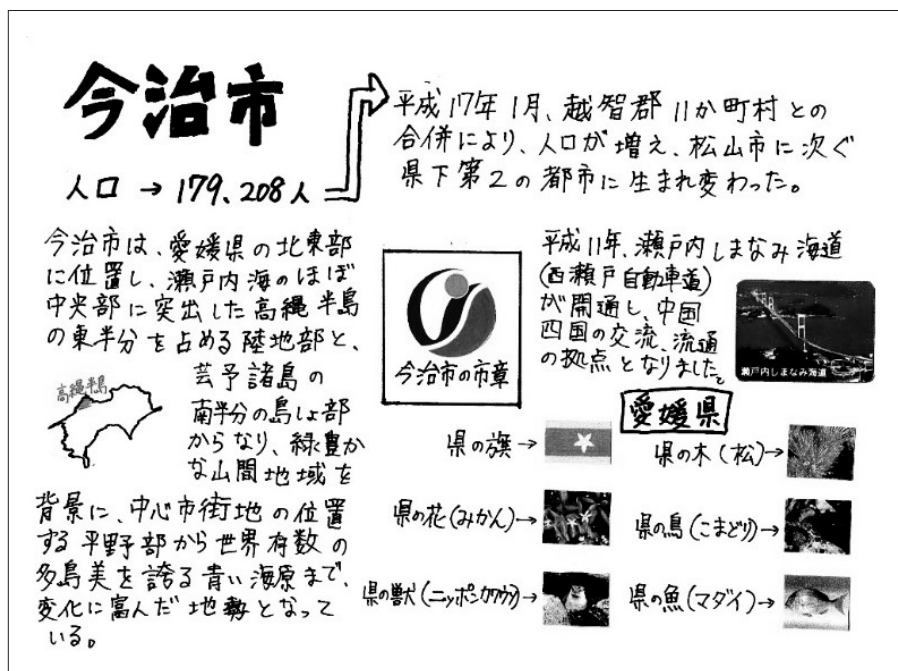 今治市
人口 → 179、208人
平成17年1月、越智郡11か町村との
合併により、人口が増え、松山市に次ぐ
県下第2の都市に生まれ変わった。
今治市は、愛媛県の北東部
に位置し、瀬戸内海のほぼ
中央部に突出した高縄半島
の東半分を占める陸地部と、
芸予諸島の
南半分の島しょ部
からなり、緑豊か
な山間地域を
背景に、中心市街地の位置
する平野部から世界有数の
多島美を誇る青い海原まで、
変化に富んだ地勢となって
いる。
高縄半島
今治市の市章
平成11年、瀬戸内しまなみ海道
(西瀬戸自動車道)
が開通し、中国
四国の交流、流通
の拠点となりました。
瀬戸内しまなみ海道
愛媛県
県の旗→
県の木(松)→
県の花(みかん)→
県の鳥(こまどり)→
県の獣(ニッポンカワウソ)→
県の魚(マダイ)→